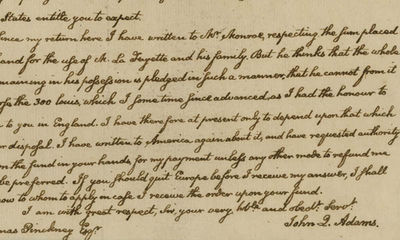 States entitle you to expect.
ince my return here I have written to Mr. Monroe, respecting the sum placed
and for the use of M. La Fayette and his family. But he thinks that the whole
maining in his possession is pledged in such a manner, that he cannot from it
rse the 300 louis, which I some time since advanced, as I had the honour to
n to you in England. I have therefore at present only to depend upon that which
ur disposal. I have written to America again about it, and have requested authority
om the fund in your hands, for my payment unless any other mode to refund me
be preferred. If you should quit Europe before I receive my answer, I shall
now to whom to apply in case I receive the order upon your fund.
I am with great respect, Sir, your very hble. and obedt. Servt.
John Q. Adams.
mas Pinckney Esqr.